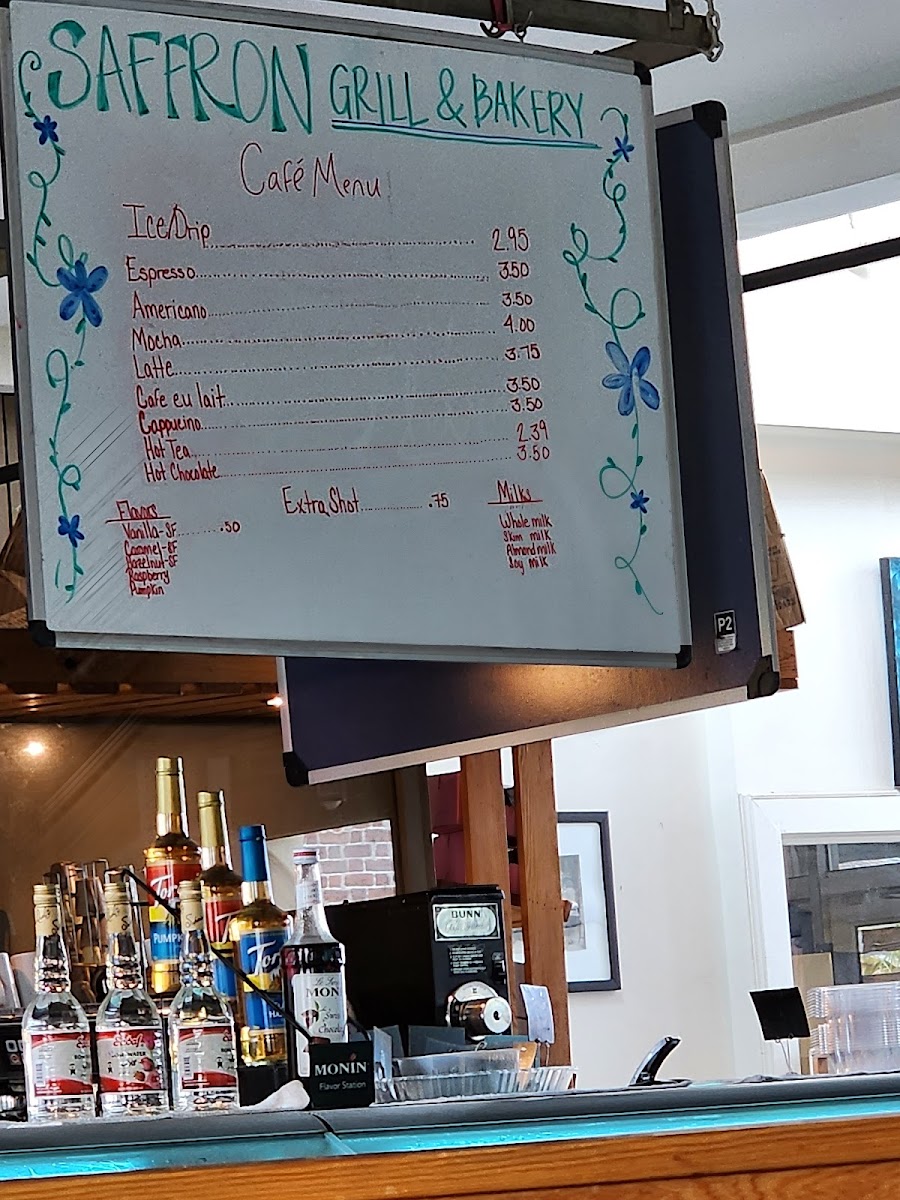 SAFFRON GRILL & BAKERY
Café Menu
Ice/Drip 2.95
Espresso 3.50
Americano 3.50
Mocha 4.00
Latte 3.75
Cafe eu lait 3.50
Cappucino 3.50
Hot Tea 2.39
Hot Chocolate 3.50
Flavors
Vanilla-SF .50
Caramel-SF
Hazelnut-SF
Raspberry
Pumpkin
Extra Shot .75
Milks
Whole milk
Skim milk
Almond milk
Soy milk
P2
BUNN
PUMPK
Tor
MON
MONIN
Flavor Station